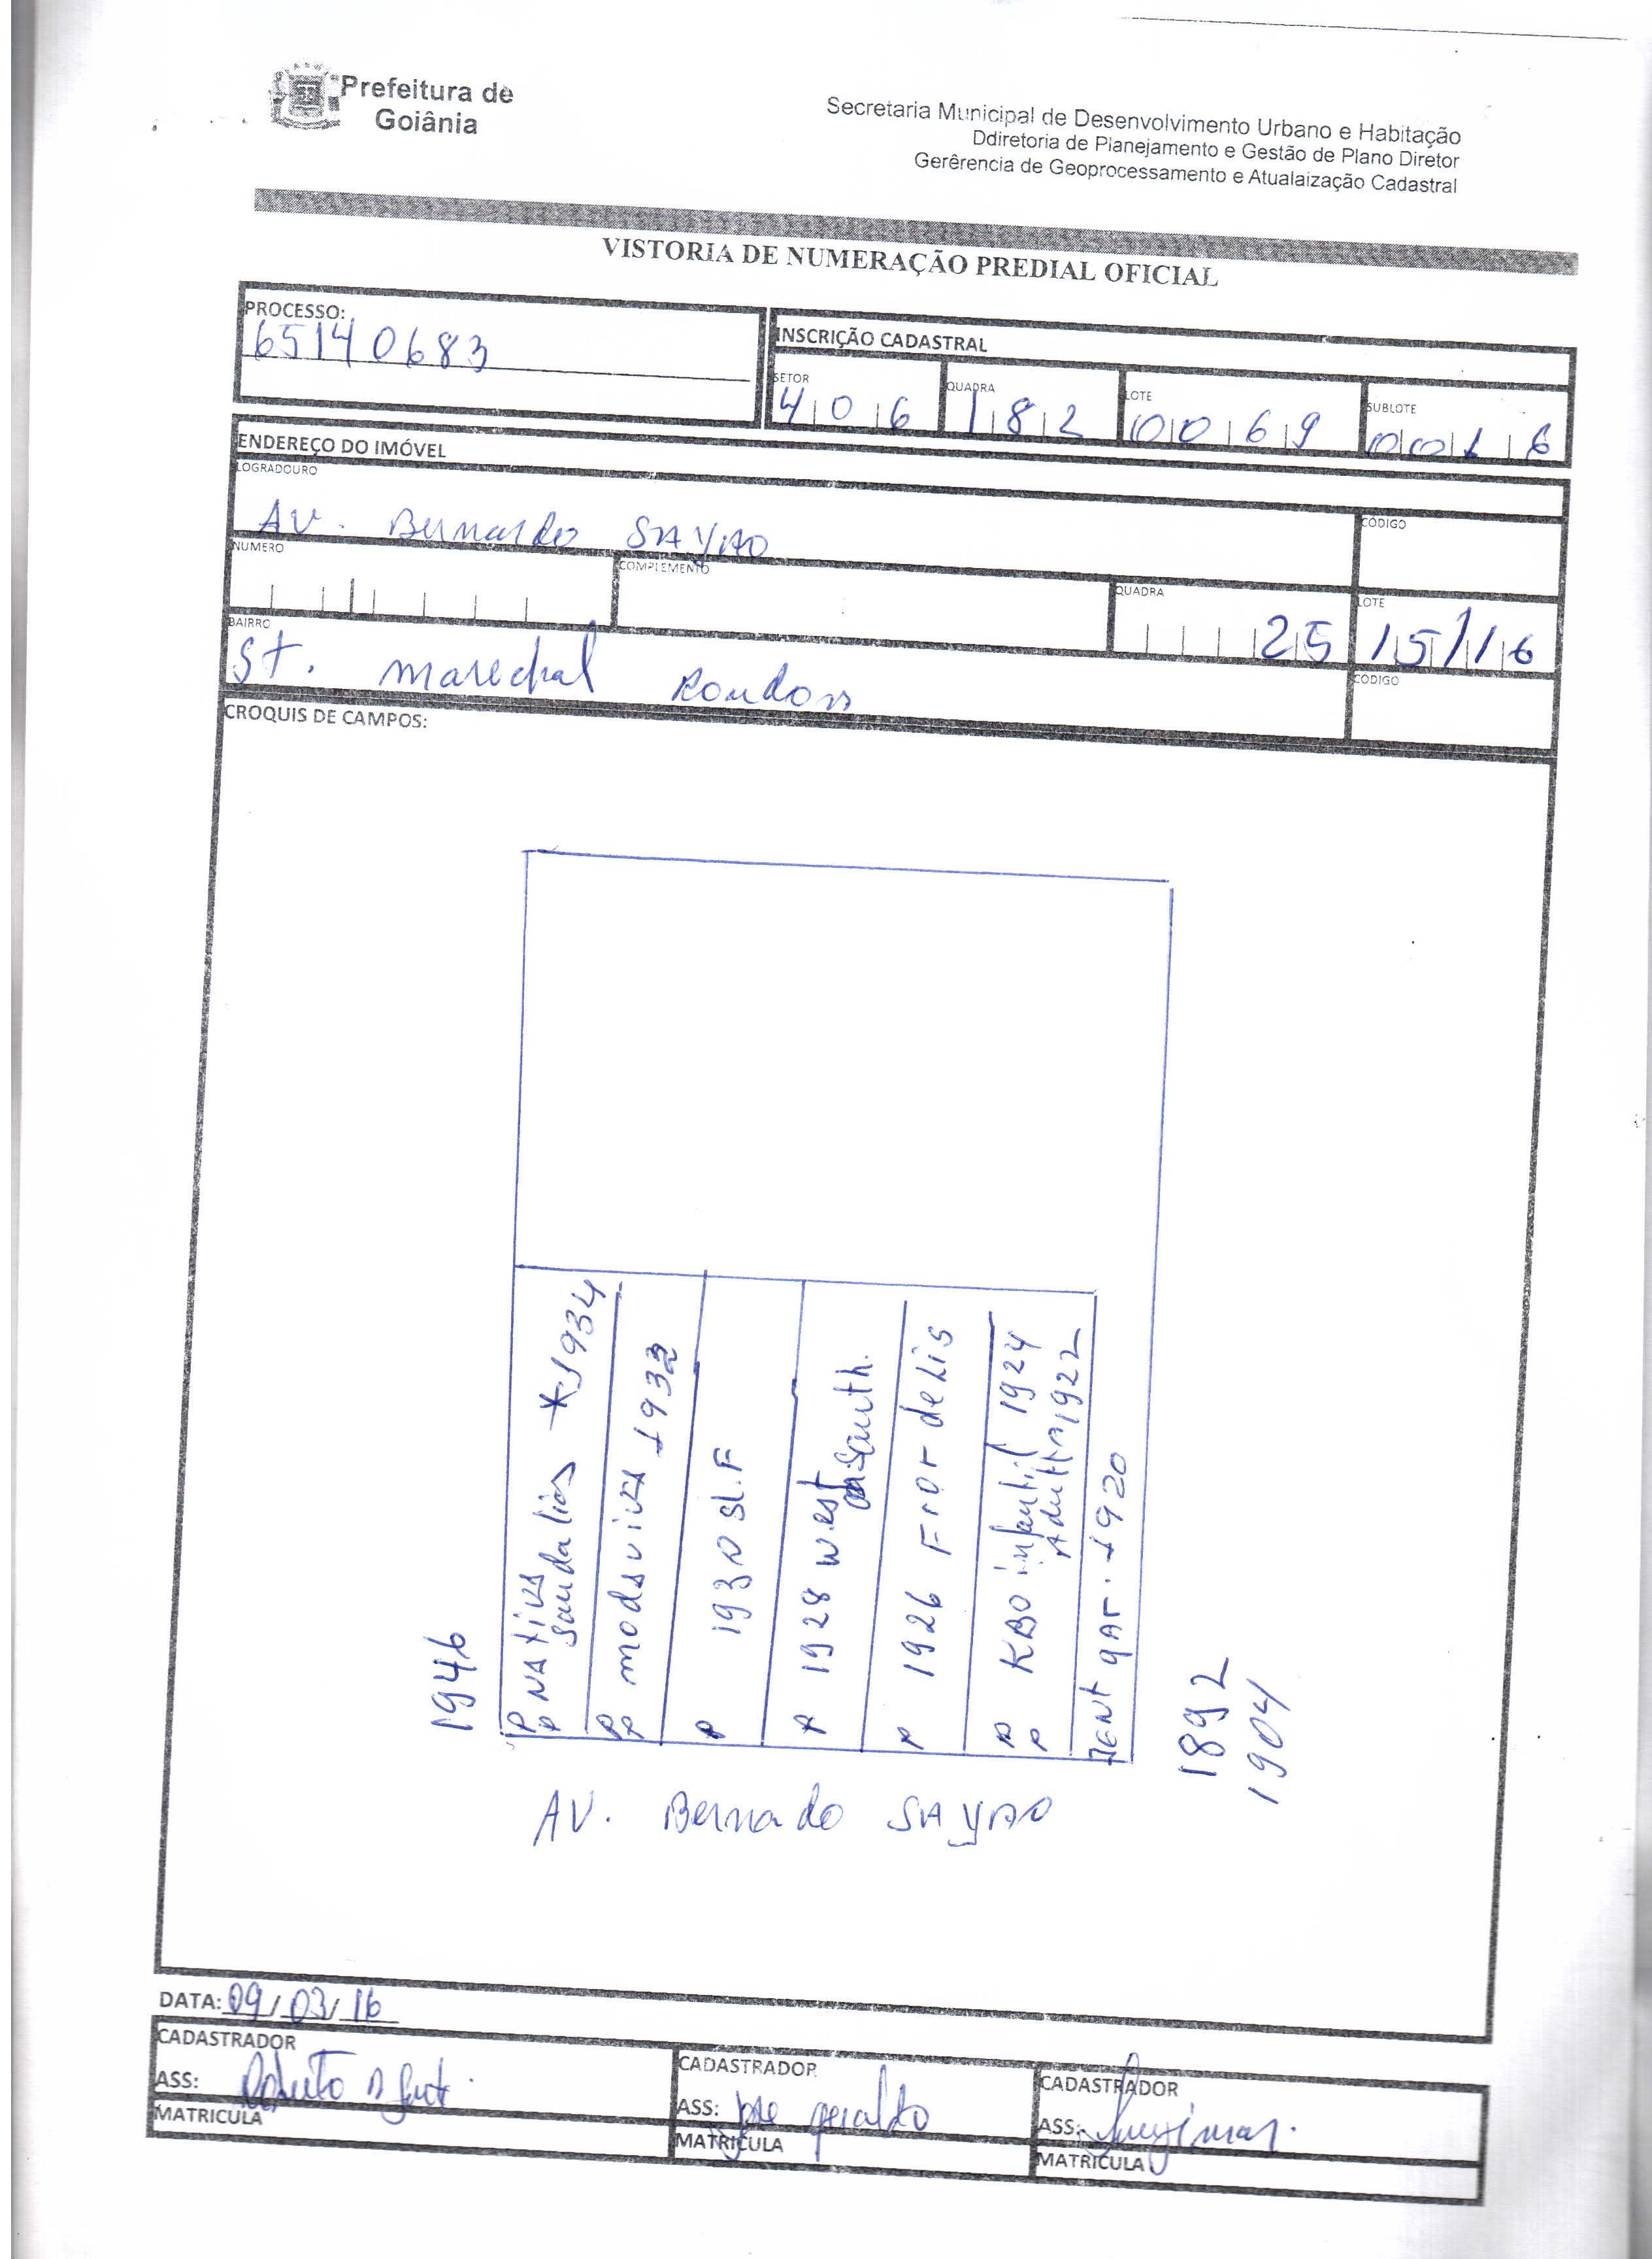 Prefeitura de
Goiânia
Secretaria Municipal de Desenvolvimento Urbano e Habitação
Ddiretoria de Planejamento e Gestão de Plano Diretor
Gerêrencia de Geoprocessamento e Atualaização Cadastral
VISTORIA DE NUMERAÇÃO PREDIAL OFICIAL
PROCESSO:
65140683
INSCRIÇÃO CADASTRAL
SETOR QUADRA LOTE SUBLOTE
406 182 0069 0016
ENDEREÇO DO IMÓVEL
LOGRADOURO CÓDIGO
AV. Bernardo SAYAO
NUMERO COMPLEMENTO QUADRA LOTE
25 15/16
BAIRRO CÓDIGO
St. marechal Rondon
CROQUIS DE CAMPOS:
1946
P P NAtius
sandalias *1934
P P modavius 1932
P 1930 sl.F
P 1928 west
South.
P 1926 Fror de Lis
P P KBO infantil 1924
Adulto 1922
ENt gAr. 1920
1892
1904
AV. Bernado SAYAO
DATA: 09/03/16
CADASTRADOR CADASTRADOR CADASTRADOR
ASS: Roberto ASS: José geraldo ASS:
MATRICULA MATRICULA MATRICULA